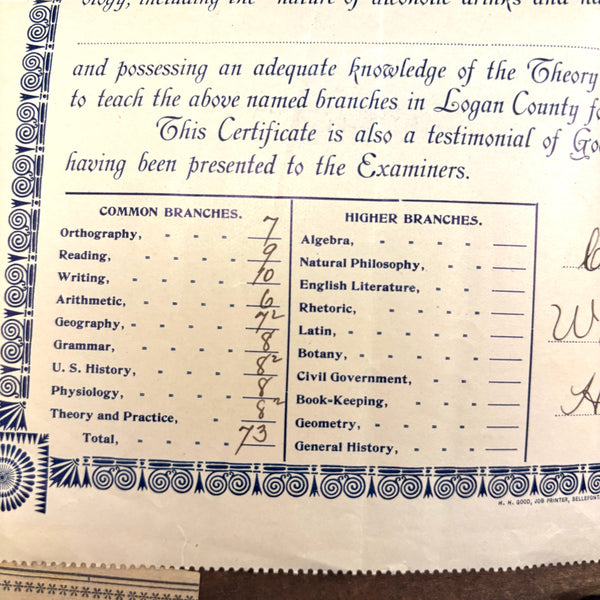 ology, including the nature of alcoholic drinks and na
and possessing an adequate knowledge of the Theory
to teach the above named branches in Logan County fo
This Certificate is also a testimonial of Goo
having been presented to the Examiners.
COMMON BRANCHES.
Orthography, 7
Reading, 9
Writing, 10
Arithmetic, 6
Geography, 7²
Grammar, 8
U. S. History, 8²
Physiology, 8
Theory and Practice, 8²
Total, 73
HIGHER BRANCHES.
Algebra,
Natural Philosophy,
English Literature,
Rhetoric,
Latin,
Botany,
Civil Government,
Book-Keeping,
Geometry,
General History,
H. H. GOOD, JOB PRINTER, BELLEFONT